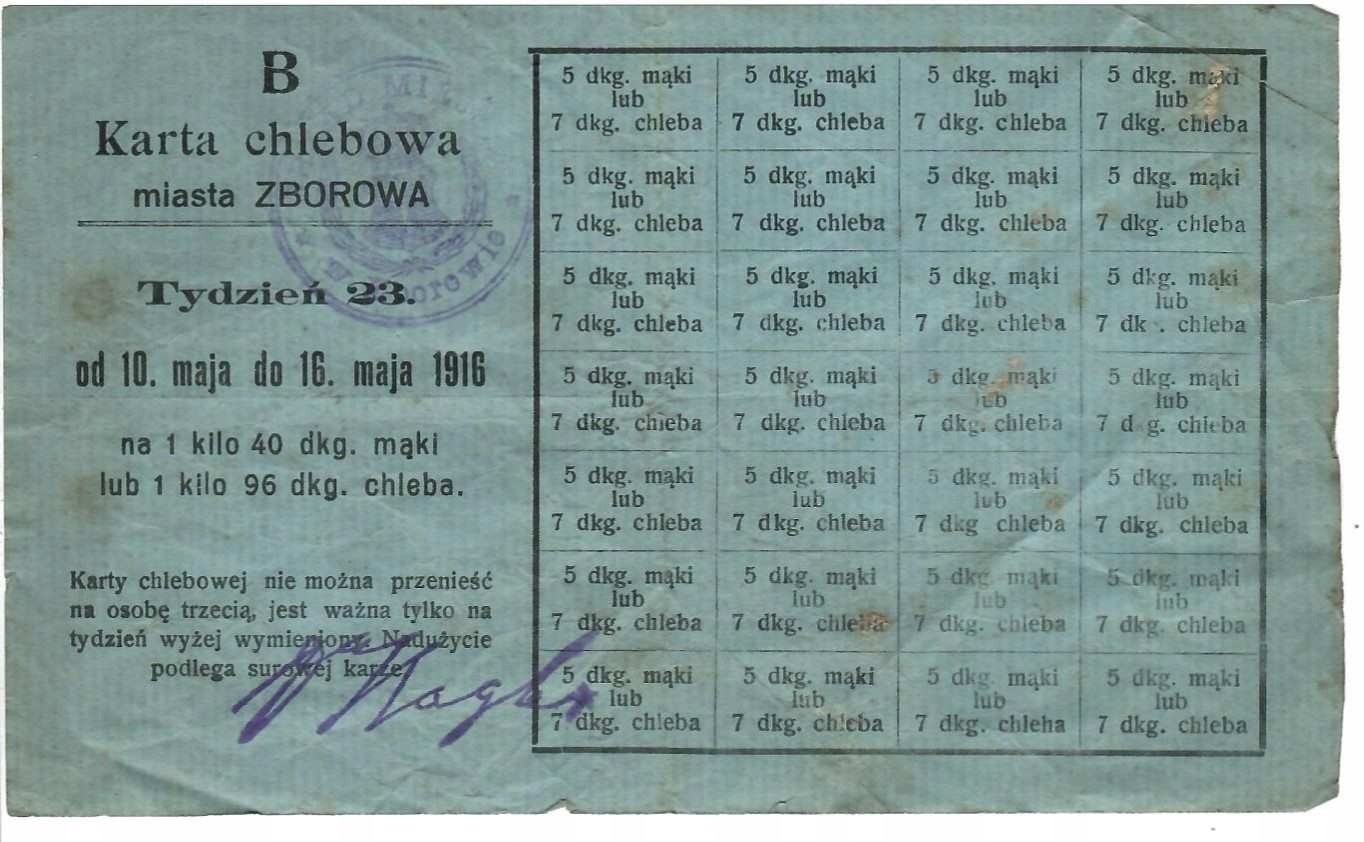 B
Karta chlebowa
miasta ZBOROWA
Tydzień 23.
od 10. maja do 16. maja 1916
na 1 kilo 40 dkg. mąki
lub 1 kilo 96 dkg. chleba.
Karty chlebowej nie można przenieść
na osobę trzecią, jest ważna tylko na
tydzień wyżej wymieniony. Nadużycie
podlega surowej karze.
5 dkg. mąki 5 dkg. mąki 5 dkg. mąki 5 dkg. mąki
lub lub lub lub
7 dkg. chleba 7 dkg. chleba 7 dkg. chleba 7 dkg. chleba
5 dkg. mąki 5 dkg. mąki 5 dkg. mąki 5 dkg. mąki
lub lub lub lub
7 dkg. chleba 7 dkg. chleba 7 dkg. chleba 7 dkg. chleba
5 dkg. mąki 5 dkg. mąki 5 dkg. mąki 5 dkg. mąki
lub lub lub lub
7 dkg. chleba 7 dkg. chleba 7 dkg. chleba 7 dk . chleba
5 dkg. mąki 5 dkg. mąki 5 dkg. mąki 5 dkg. mąki
lub lub lub lub
7 dkg. chleba 7 dkg. chleba 7 dkg. chleba 7 d g. chleba
5 dkg. mąki 5 dkg. mąki 5 dkg. mąki 5 dkg. mąki
lub lub lub lub
7 dkg. chleba 7 dkg. chleba 7 dkg chleba 7 dkg. chleba
5 dkg. mąki 5 dkg. mąki 5 dkg. mąki 5 dkg. mąki
lub lub lub lub
7 dkg. chleba 7 dkg. chleba 7 dkg. chleba 7 dkg. chleba
5 dkg. mąki 5 dkg. mąki 5 dkg. mąki 5 dkg. mąki
lub lub lub lub
7 dkg. chleba 7 dkg. chleba 7 dkg. chleha 7 dkg. chleba